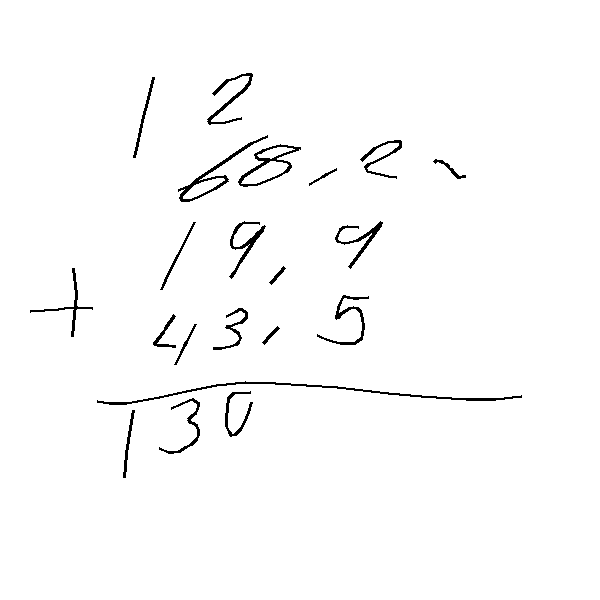 1 2
68,2
19,9
+ 43,5
130